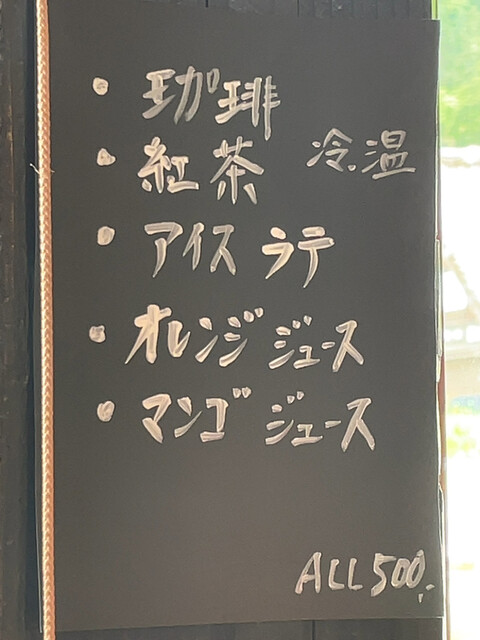 ・珈琲
・紅茶 冷.温
・アイス ラテ
・オレンジ ジュース
・マンゴ ジュース
ALL 500.-